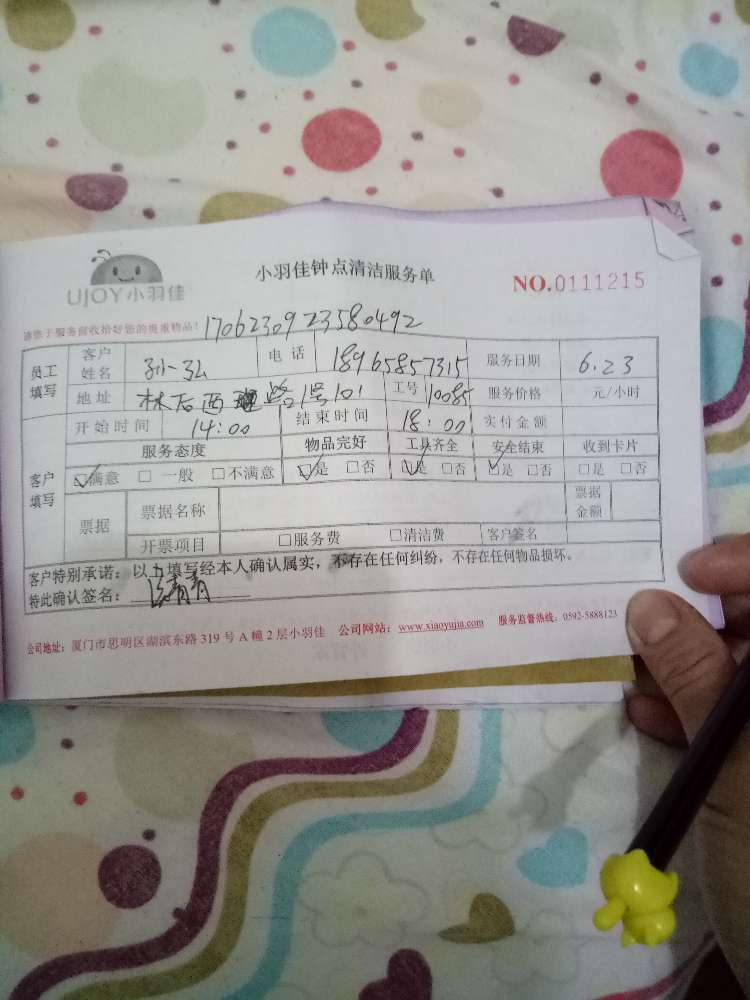 UJOY小羽佳
小羽佳钟点清洁服务单
NO.0111215
请您于服务前收拾好您的贵重物品!
1706230923580492
员工填写 客户姓名 电话 18965857315 服务日期 6.23
地址 林后西 路1号101 工号 10085 服务价格 元/小时
开始时间 14:00 结束时间 18:00 实付金额
客户填写 服务态度 物品完好 工具齐全 安全结束 收到卡片
☑满意 □一般 □不满意 ☑是 □否 ☑是 □否 ☑是 □否 □是 □否
票据 票据名称 票据金额
开票项目 □服务费 □清洁费 客户签名
客户特别承诺:以上填写经本人确认属实,不存在任何纠纷,不存在任何物品损坏。
特此确认签名: 青青
公司地址:厦门市思明区湖滨东路 319 号 A 幢 2 层小羽佳 公司网站:www.xiaoyujia.com 服务监督热线:0592-5888123